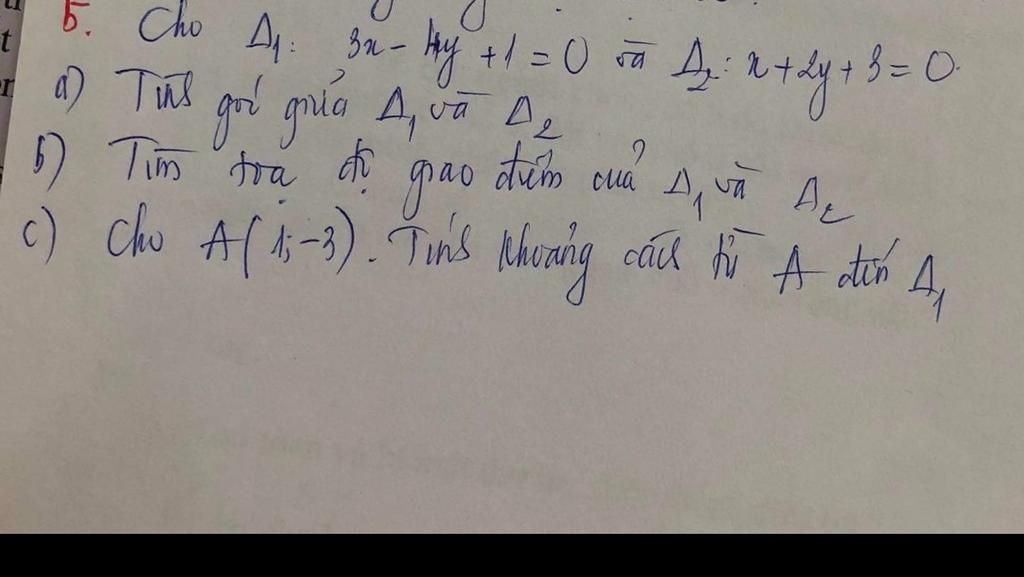 5. Cho Δ1: 3x - 4y + 1 = 0 và Δ2: x + 2y + 3 = 0.
a) Tính góc giữa Δ1 và Δ2
b) Tìm tọa độ giao điểm của Δ1 và Δ2
c) Cho A(1; -3). Tính khoảng cách từ A đến Δ1